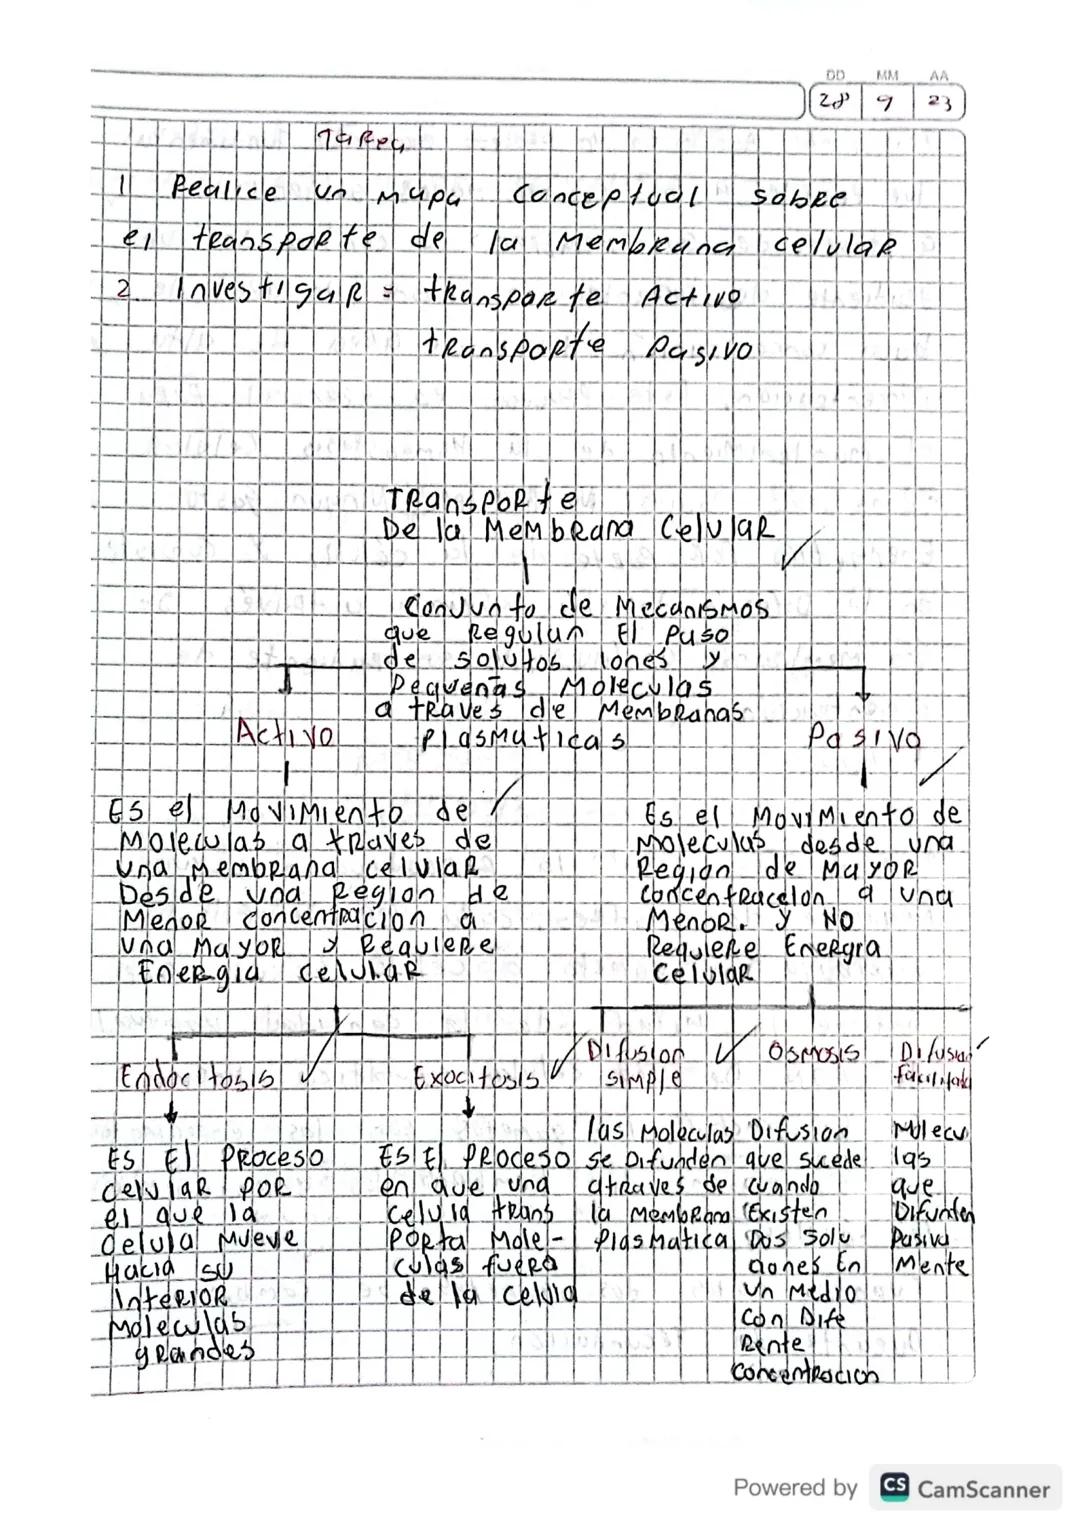 DD MM AA
28 9 23
Tarea
1 Realice un mapa conceptual sobre
el transporte de la Membrana celular
2 Investigar = transporte Activo
transporte Pasivo
Transporte
De la Membrana Celular
Conjunto de Mecanismos
que Regulan El Paso
de solutos iones y
Pequeñas Moleculas
a traves de Membranas
Plasmaticas
Activo
Pasivo
Es el Movimiento de
Moleculas a traves de
una Membrana celular
Desde una Region de
Menor concentracion a
una Mayor y Requiere
Energia celular
Es el Movimiento de
Moleculas desde una
Region de Mayor
concentracelon a una
Menor. y NO
Requiere Energia
Celular
Endocitosis
Exocitosis
Difusion
simple
Osmosis
Difusion
facilitada
Es El Proceso
celular Por
el que la
Celula Mueve
Hacia su
Interior
Moleculas
grandes
Es El Proceso
en que una
celula trans
Porta Mole-
culas fuera
de la celula
las Moleculas
se Difunden
atraves de
la Membrana
Plasmatica
Difusion
que sucede
cuando
Existen
Dos Solu
ciones En
un Medio
Con Dife
Rente
Concentracion
Molecu
las
que
Difunden
Pasiva
Mente
Powered by CS CamScanner